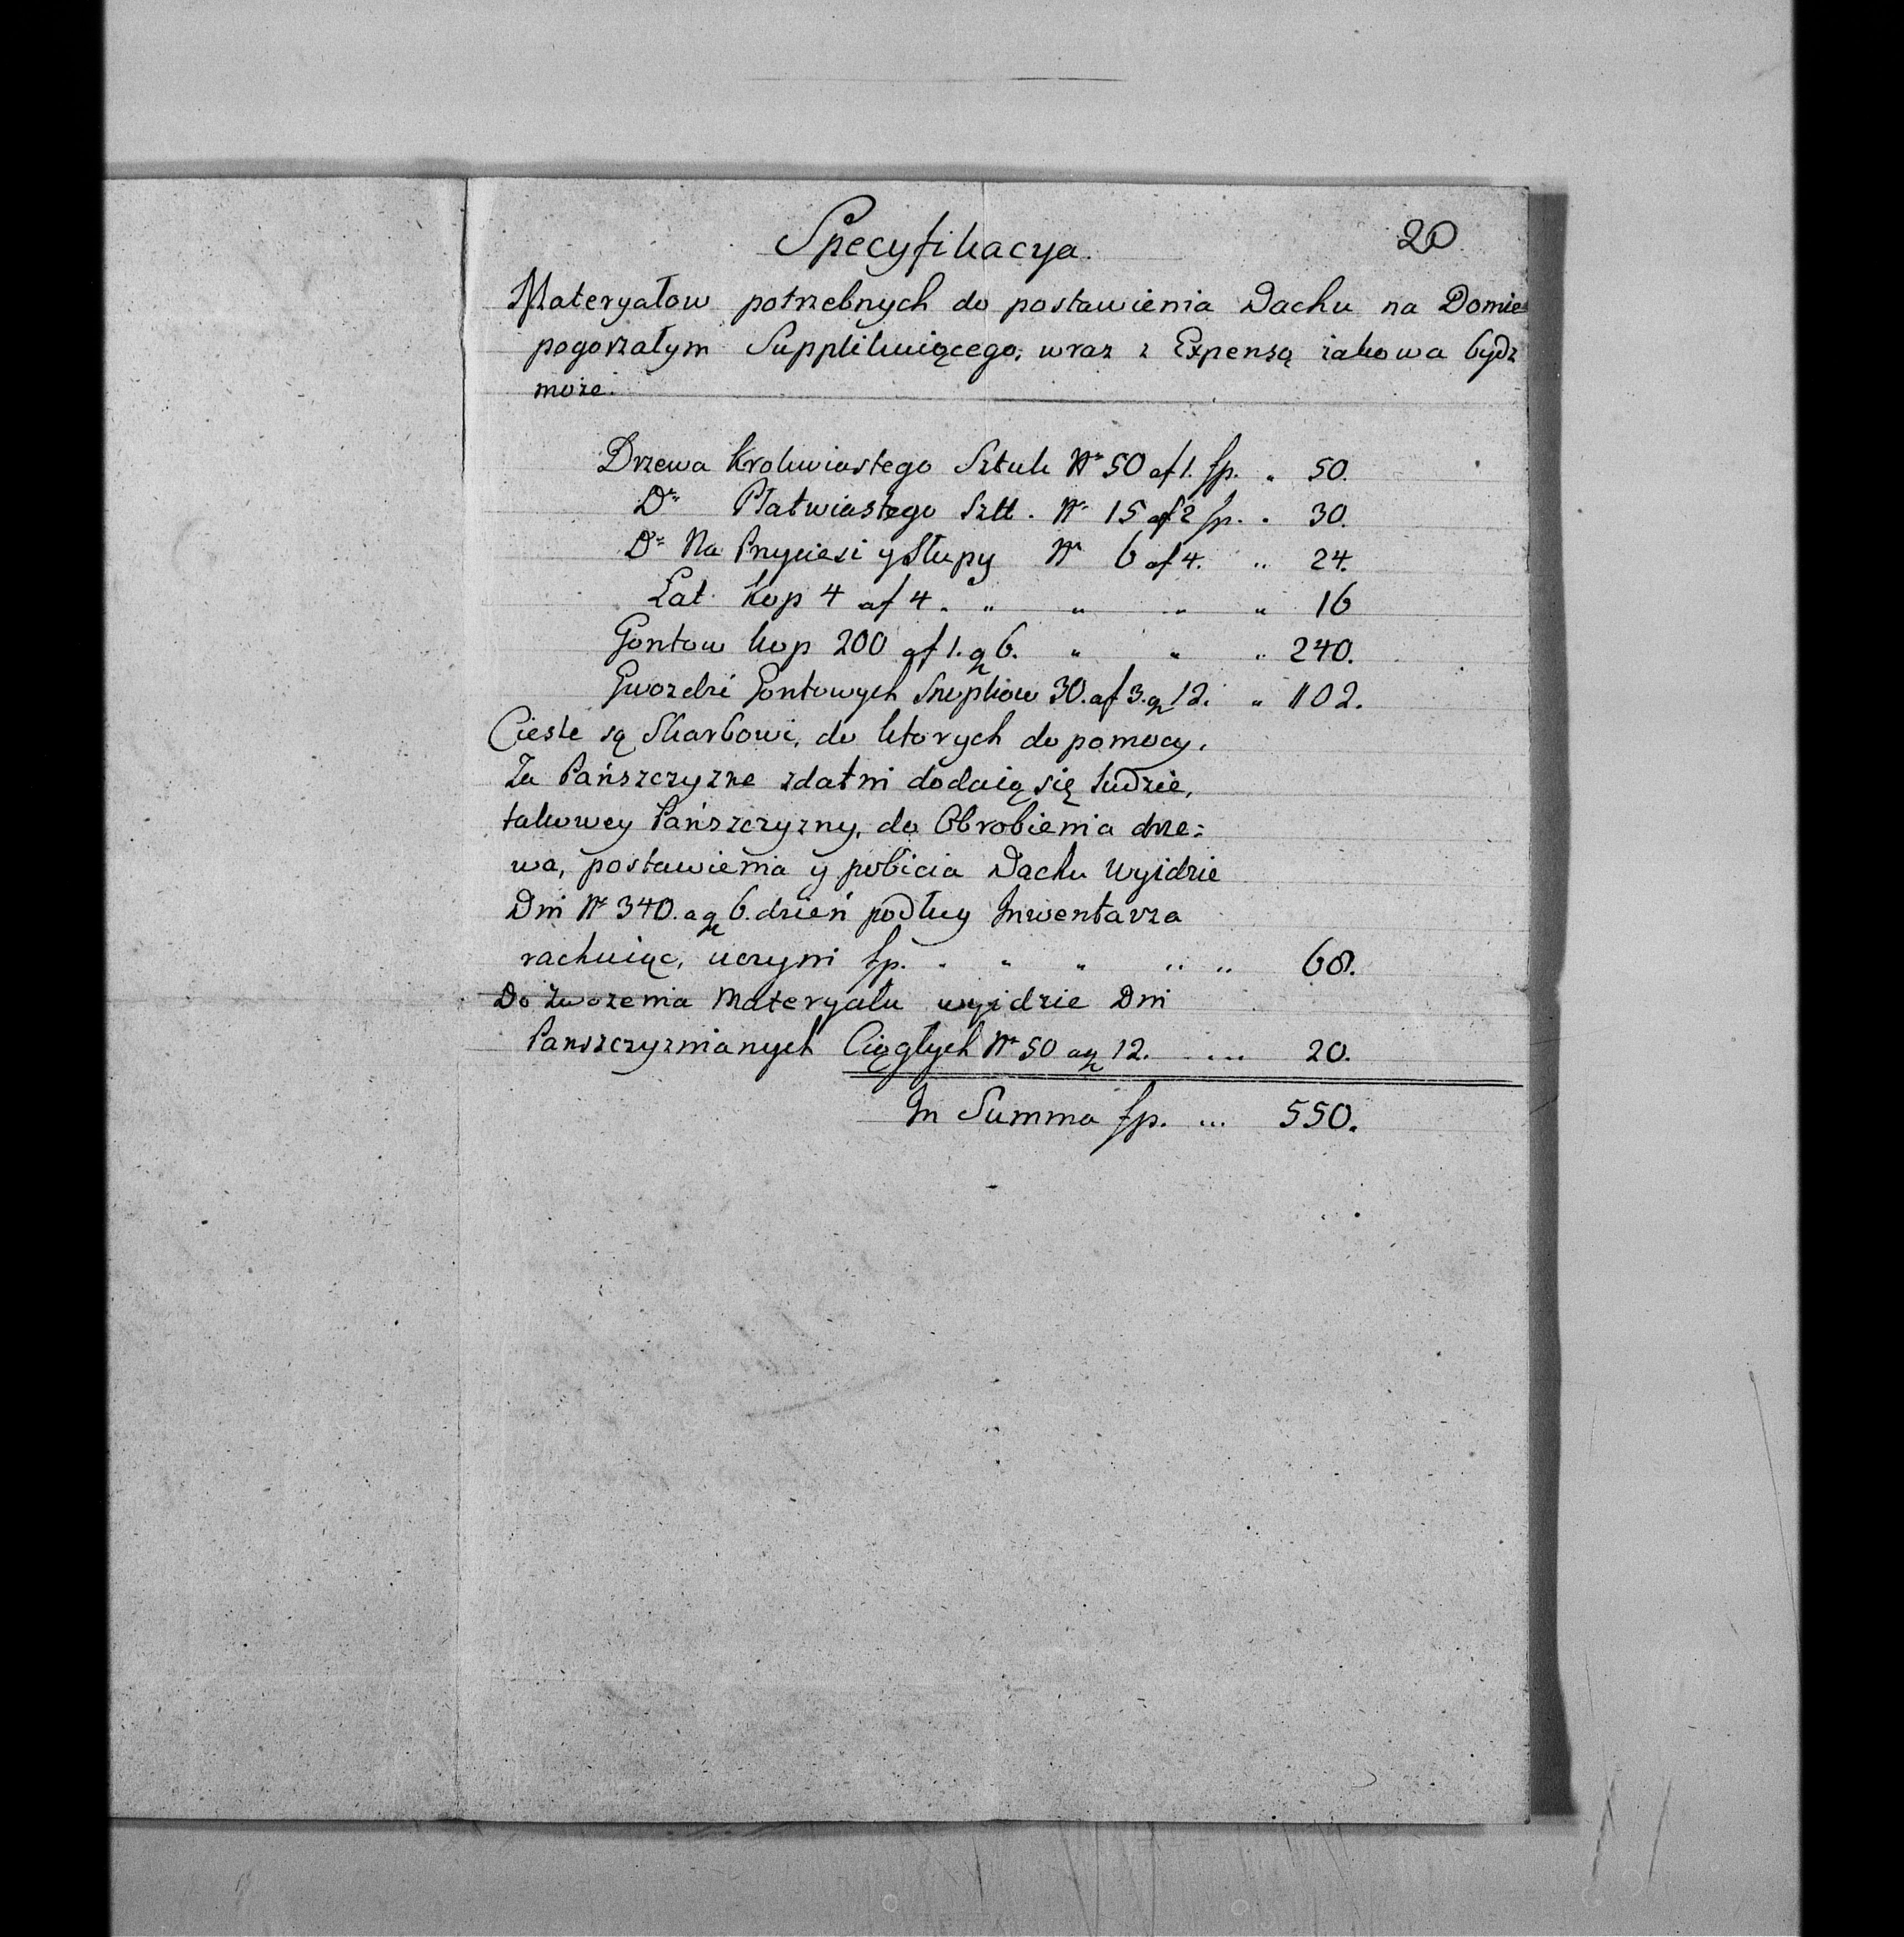 Specyfikacya. 20
Materyałow potrzebnych do postawienia Dachu na Domie
pogorzałym Supplikuiącego, wraz z Expensą iakowa bydz
może.
Drzewa Krokwiastego Sztuk Nr 50 af 1. fp. " 50.
Do Płatwiastego Szt. Nr 15 af 2 fp. " 30.
Do Na Przyciesi y Słupy Nr 6 af 4. " 24.
Łat Kop 4 af 4. " " " " 16
Gontow kop 200 af 1. g 6. " " " 240.
Gwozdzi Gontowych Snopkow 30. af 3. g 12. " 102.
Cieśle są Skarbowi, do ktorych do pomocy,
Za Pańszczyzne zdatni dodaią się ludzie,
takowey Pańszczyzny, do Obrobienia drze=
wa, postawienia y pobicia Dachu wyidzie
Dni Nr 340. a g 6. dzień podług Inwentarza
rachuiąc, uczyni fp. " " " " " 68.
Do Zwozenia Materyału wyjdzie Dni
Panszczyznianych Ciągłych Nr 50 a g 12. .... 20.
In Summa fp. ... 550.